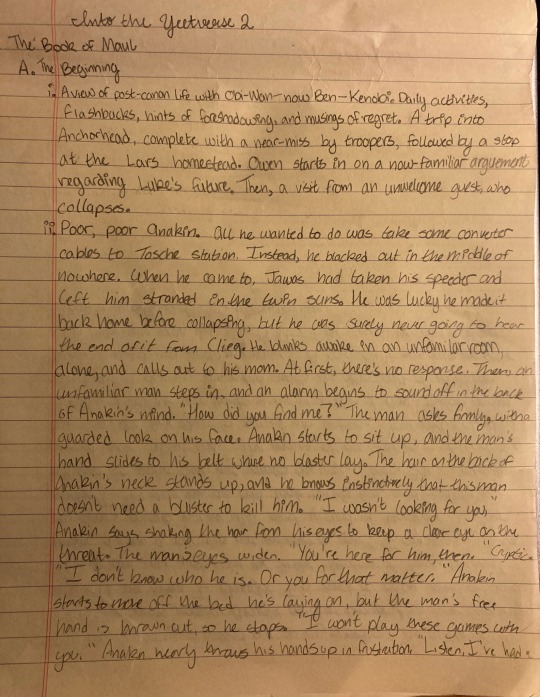 Into the Yeetverse 2
The Book of Maul
A. The Beginning
i. A view of post-canon life with Obi-Wan-now Ben-Kenobi. Daily activities,
flashbacks, hints of forshadowing, and musings of regret. A trip into
Anchorhead, complete with a near-miss by troopers, followed by a stop
at the Lars homestead. Owen starts in on a now-familiar arguement
regarding Luke's future. Then, a visit from an unwelcome guest, who
collapses.
ii. Poor, poor Anakin. All he wanted to do was take some convertor
cables to Tosche station. Instead, he blacked out in the middle of
nowhere. When he came to, Jawas had taken his speeder and
left him stranded in the twin suns. He was lucky he made it
back home before collapsing, but he was surely never going to hear
the end of it from Clieg. He blinks awake in an unfamiliar room,
alone, and calls out to his mom. At first, there's no response. Then, an
unfamiliar man steps in, and an alarm begins to sound off in the back
of Anakin's mind. "How did you find me?" The man asks firmly, with a
guarded look on his face. Anakin starts to sit up, and the man's
hand slides to his belt where no blaster lay. The hair on the back of
Anakin's neck stands up, and he knows instinctively that this man
doesn't need a blaster to kill him. "I wasn't looking for you,"
Anakin says shaking the hair from his eyes to keep a clear eye on the
threat. The man's eyes widen. "You're here for him, then." Cryptic.
"I don't know who he is. Or you for that matter." Anakin
starts to move off the bed he's laying on, but the man's free
hand is thrown out, so he stops. "I won't play these games with
you." Anakin nearly throws his hands up in frustration. "Listen, I've had a